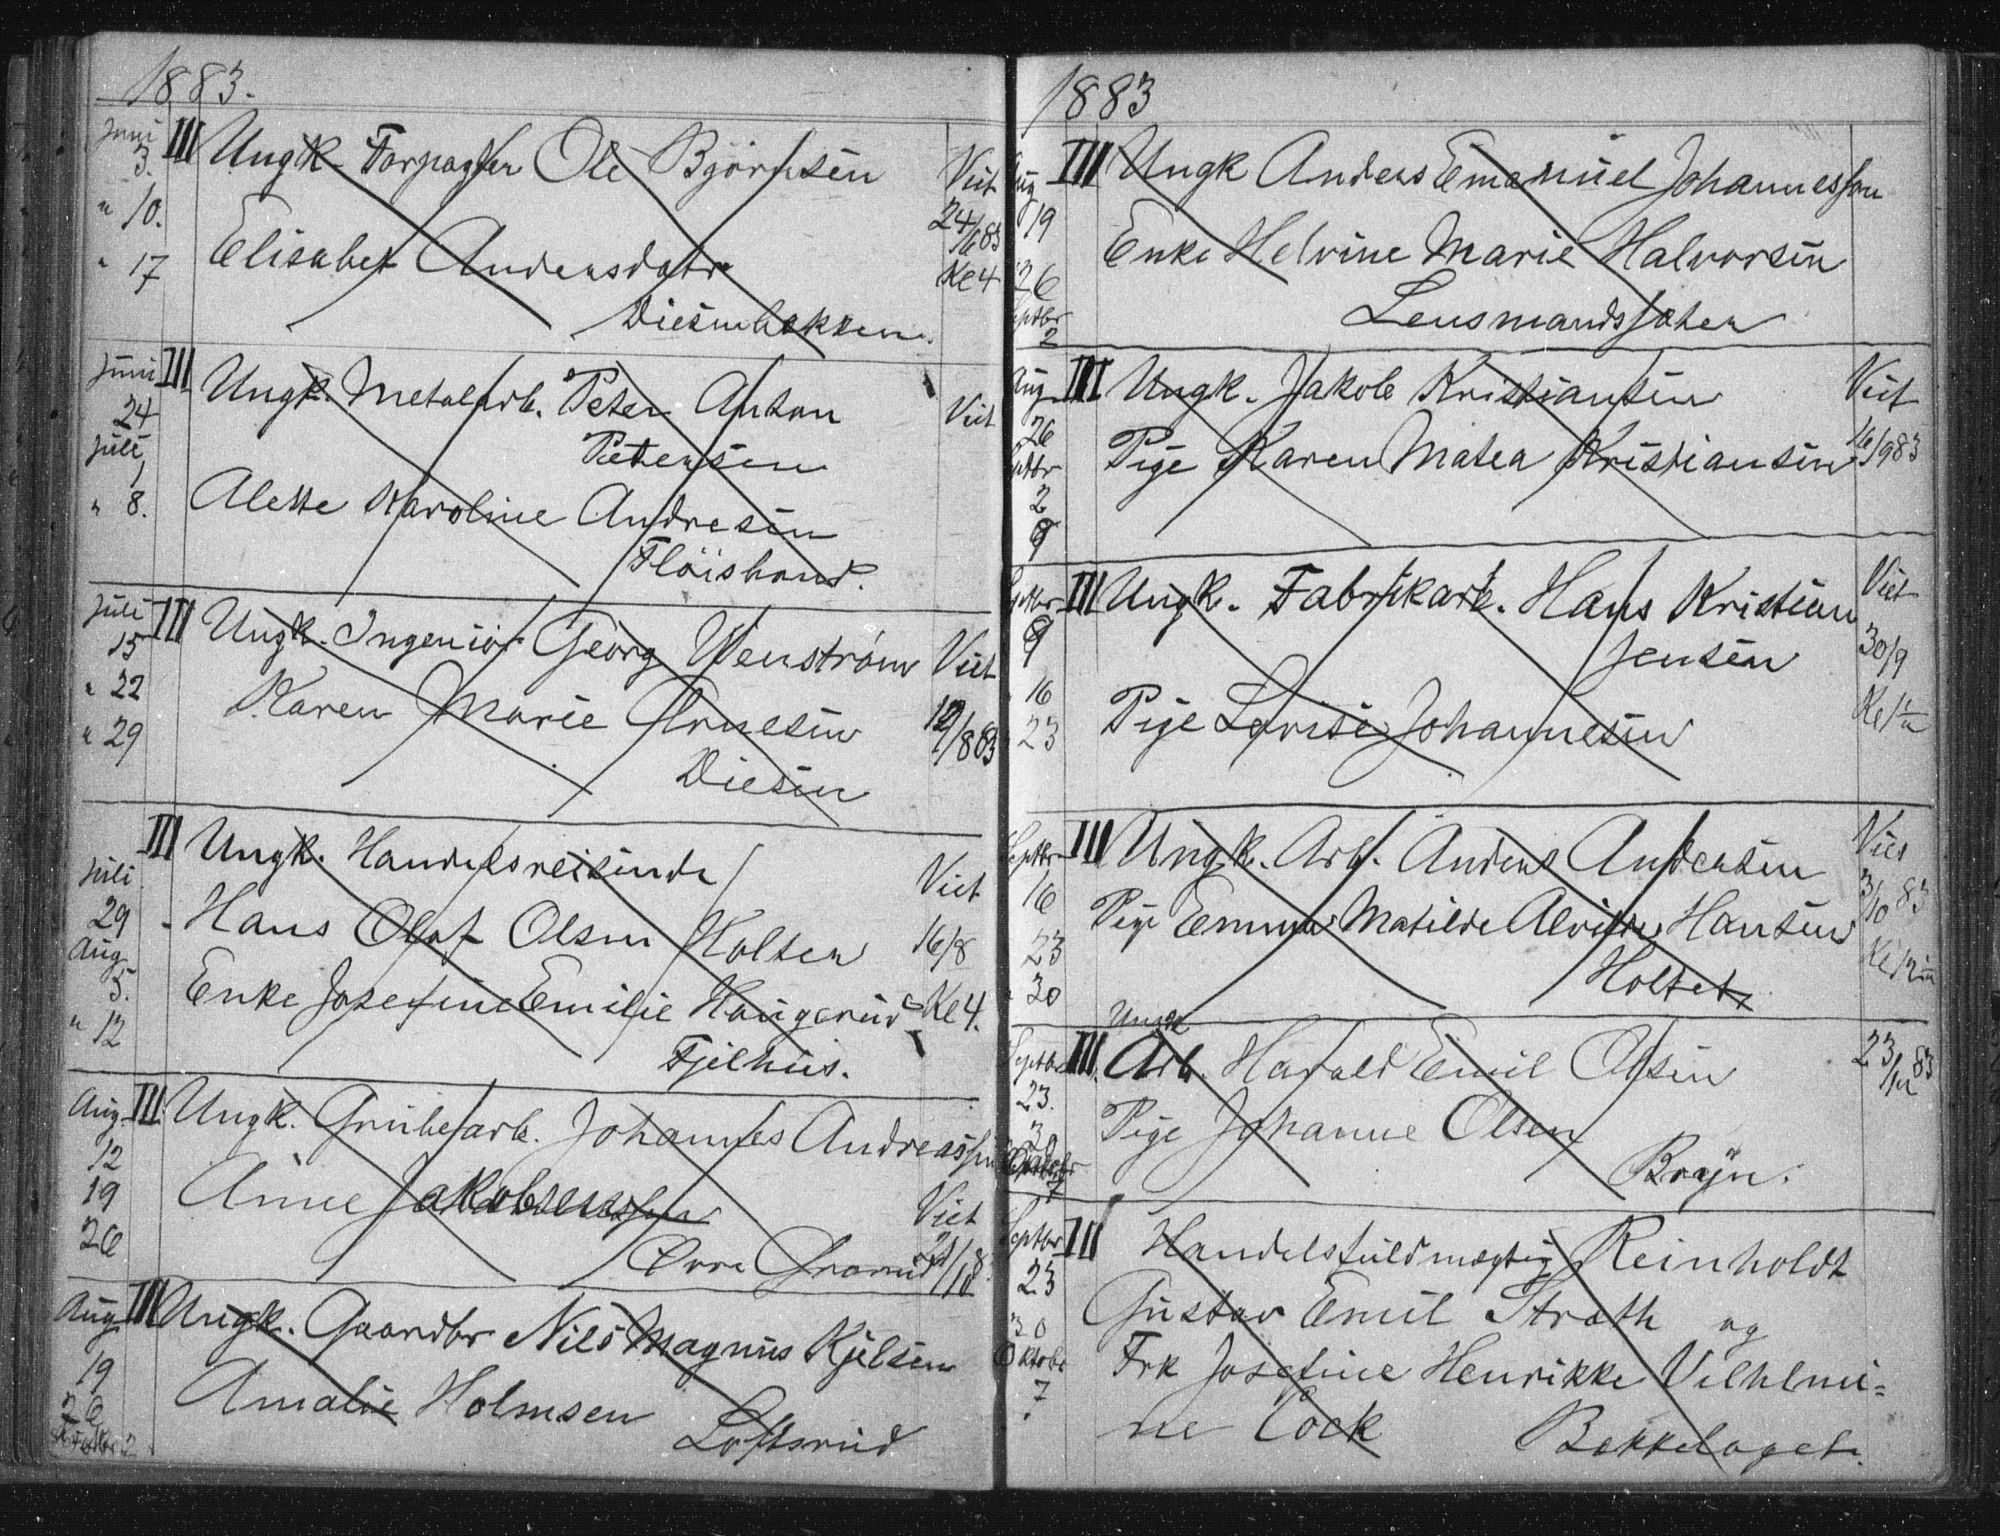 1883.
Juni 3. III Ungk. Forpagter Ole Björnsen Viet
" 10. 24/6 83
" 17 Elisabet Andersdatr Kl 4
Diesenbakken.
Juni III Ungk. Metalarb. Peter Anton Viet
24 Petersen
Juli 1
" 8. Alette Karoline Andresen
Flöisbond.
Juli III Ungk. Ingeniör Georg Wenström Viet
15
" 22 Karen Marie Arnesen 12/8 83
" 29 Diesen
III Ungk. Handelsreisende Viet
Juli 29 Hans Olaf Olsen Holter 16/8
Aug 5. Enke Josefine Emilie Haugerud Kl 4.
" 12 Fjelhus.
Aug. III Ungk. Grubearb. Johannes Andreassen
12
19 Anne Jakobsen Viet
26
Aug III Ungk. Gaardbr Nils Magnus Kjelsen
19 Amalie Holmsen
26 Loftsrud
1883
Aug III Ungk Anders Emanuel Johannesson
19
26 Enke Helvine Marie Halvorsen
Septbr 2 Lensmandssæter
Aug III Ungk. Jakob Kristiansen Viet
26 16/9 83
Septbr 2 Pige Karen Matea Kristiansen
9
Septbr III Ungk. Fabrikarb. Hans Kristian Viet
9 Jensen 30/9
16
23 Pige Lovise Johannesen
Septbr III Ungk. Arb. Anders Andersen Viet
16 3/10 83
23 Pige Emma Matilde Alvilde Hansen
30 Holtet
Ungk
Septbr III Arb. Harald Emil Olsen 23/ 83
23.
30 Pige Johanne Olsen
Oktobr 7 Bryn.
Septbr III Handelsfuldmægtig Reinholdt
23
30 Gustav Emil Strøth og
Oktobr 7 Frk Josefine Henrikke Vilhelmi=
ne Cock Bekkelaget.